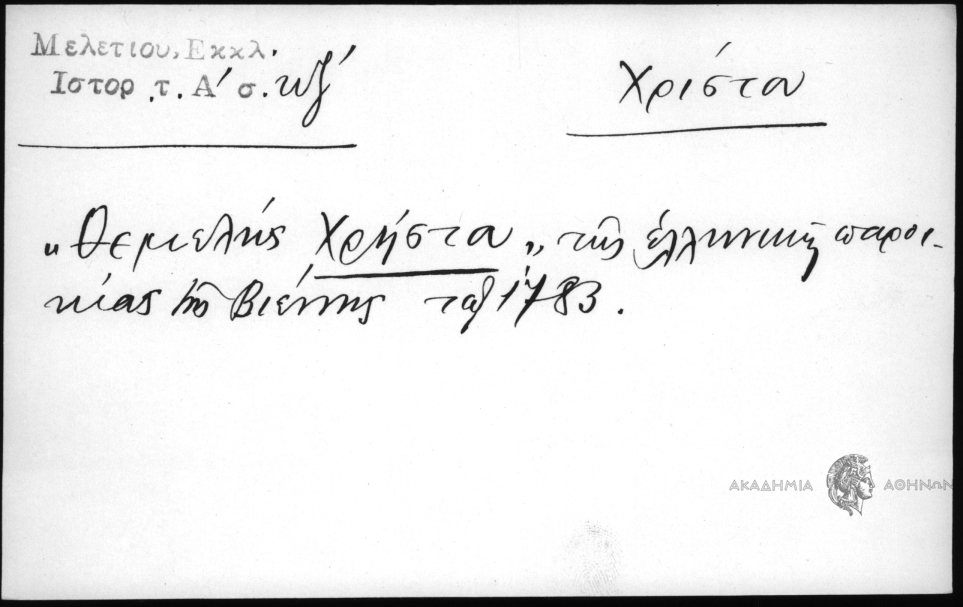 Μελετίου, Εκκλ.
Ιστορ. τ. Α' σ. κζ'
Χρίστου
„Θεμελής Χρήστου„ τῆς ἑλληνικῆς παροι-
κίας τῆς Βιέννης τοῦ 1783.
ΑΚΑΔΗΜΙΑ ΑΘΗΝΩΝ